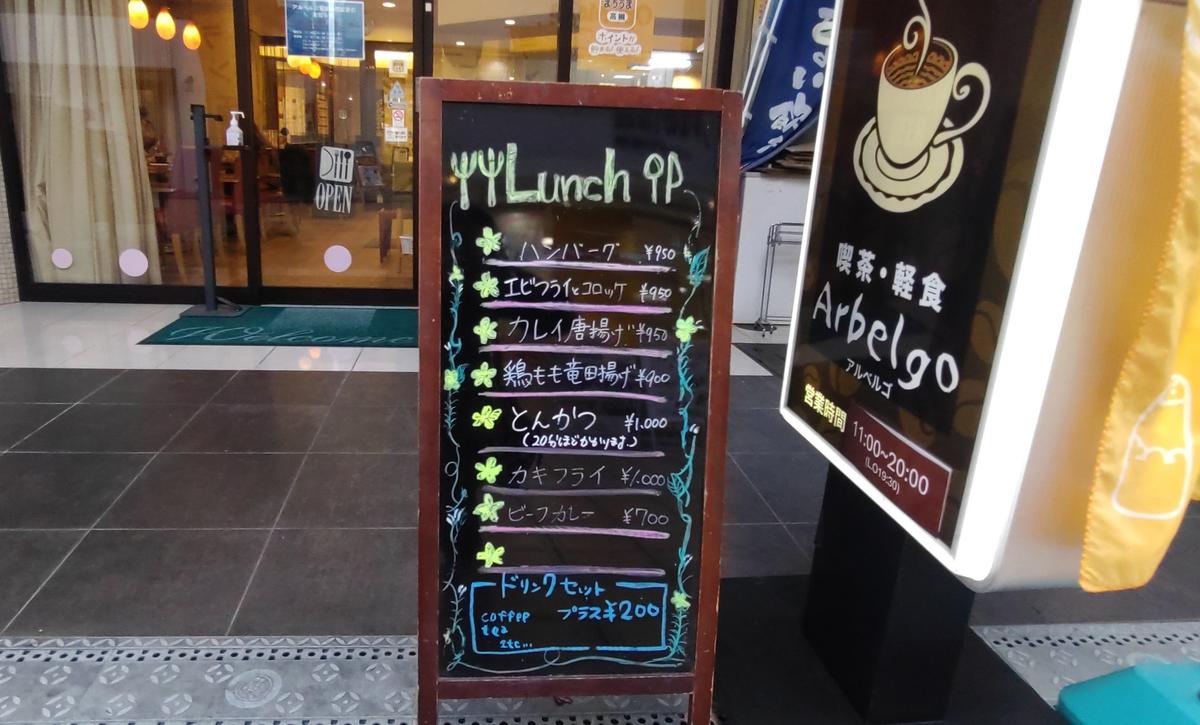 OPEN
Welcome
Lunch
ハンバーグ ¥950
エビフライとコロッケ ¥950
カレイ唐揚げ ¥950
鶏もも竜田揚げ ¥900
とんかつ ¥1.000
(20分ほどかかります。)
カキフライ ¥1.000
ビーフカレー ¥700
ドリンクセット
coffee プラス¥200
tea
etc...
喫茶・軽食
Arbelgo
アルベルゴ
営業時間 11:00~20:00
(LO19:30)
高槻
ポイントが
貯まる!使える!